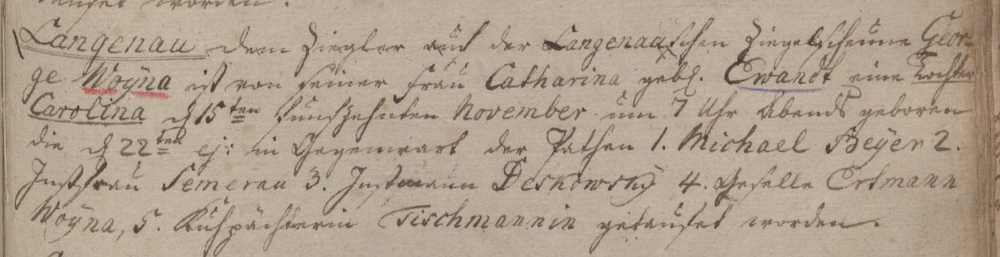 taufet worden.
Langenau dem Ziegler auf der Langenauschen Ziegelscheune Geor-
ge Woÿna ist von seiner Frau Catharina gebl. Ewandt eine Tochter
Carolina d 15ten funfzehnten November um 7 Uhr Abends geboren
die d 22ten ej: in Gegenwart der Pathen 1. Michael Beÿer 2.
Instfrau Semerau 3. Instmann Deskowskÿ 4. Geselle Ertmann
Woÿna, 5. Kuhpächterin Tischmannin getaufet worden.